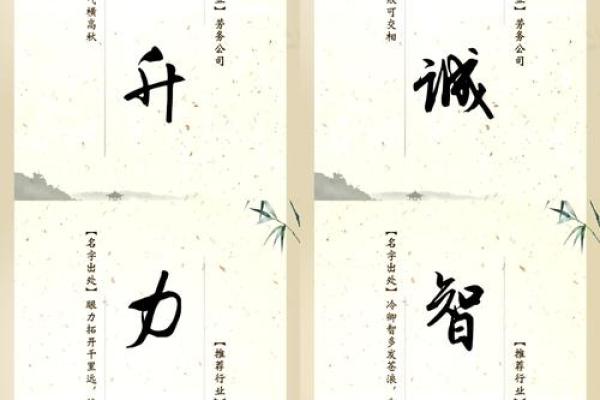 气横高秋
升
业】劳务公司
可交相
诚
业】劳务公司
【名字出处】眼力拓开千里远，
力
【推荐行业】
【名字出处】冷卿智多发苍浪，
智
【推荐行业】